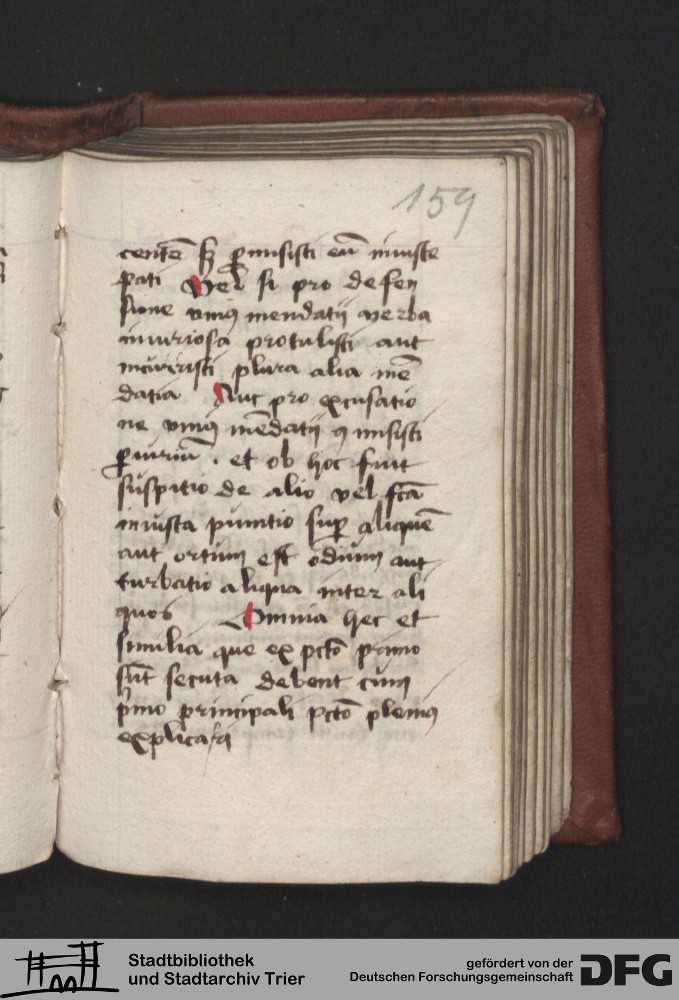 159
centē sꝫ ꝑmisisti eū iniuste
pati Vel si pro defen
sione vniꝰ mendatij verba
iniuriosa protulisti aut
incurristi plura alia mē
datia Aut pro excusatio
ne vniꝰ mēdatij ꝯmisisti
ꝑiuriū . et ob hoc fuit
suspitio de alio vel fc̄a
iniusta punitio sup̄ aliquē
aut ortum est odium aut
turbatio aliqua inter ali
quos Omnia hec et
similia que ex pctō primo
sūt secuta debent cum
pͥmo principali pctō plenius
explicari
Stadtbibliothek
und Stadtarchiv Trier
gefördert von der
Deutschen Forschungsgemeinschaft
DFG